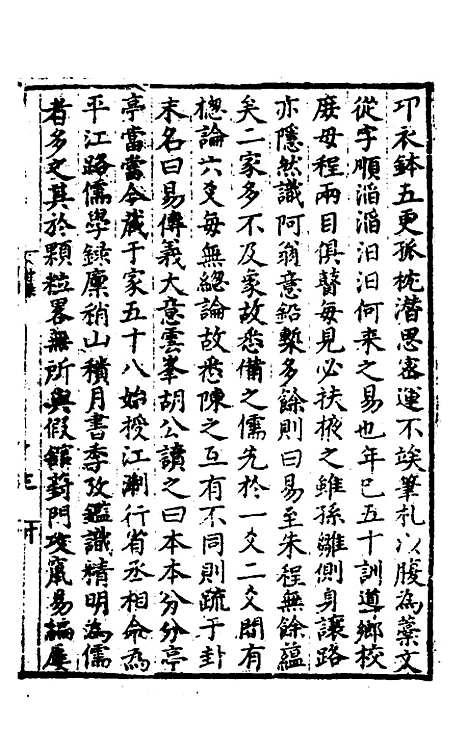 卭衣鉢五更孤枕潛思密運不竢筆札以腹為藁文
從字順滔滔汨汨何来之易也年已五十訓導鄉校
庶母程兩目俱瞽每見必扶掖之雖孫雛側身讓路
亦隱然識阿翁意鉛槧多餘則曰易至朱程無餘蘊
矣二家多不及象故悉備之儒先於一爻二爻間有
緫論六爻每無緫論故悉陳之互有不同則疏于卦
末名曰易傳義大意雲峯胡公讀之曰本本分分亭
亭當當令蔵于家五十八始授江淛行省丞相命為
平江路儒學錄廩稍山積月書季攷鑑識精明為儒
者多之其於顆粒畧無所與假館葑門攻蠃易編屢